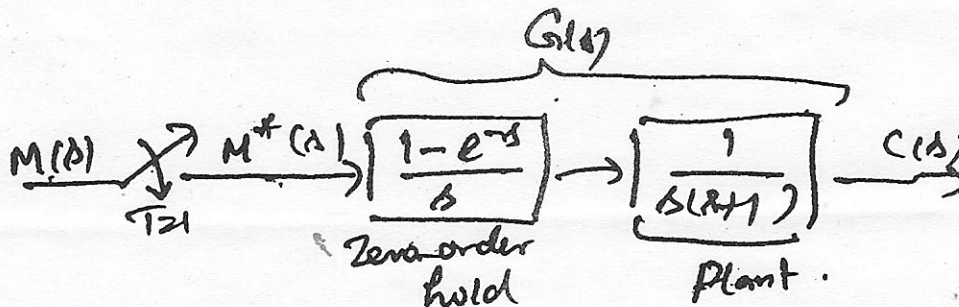 G(s)
M(s) M*(s) 1 - e^-s / s 1 / s(s+1) C(s)
T=1
Zero-order hold
Plant.